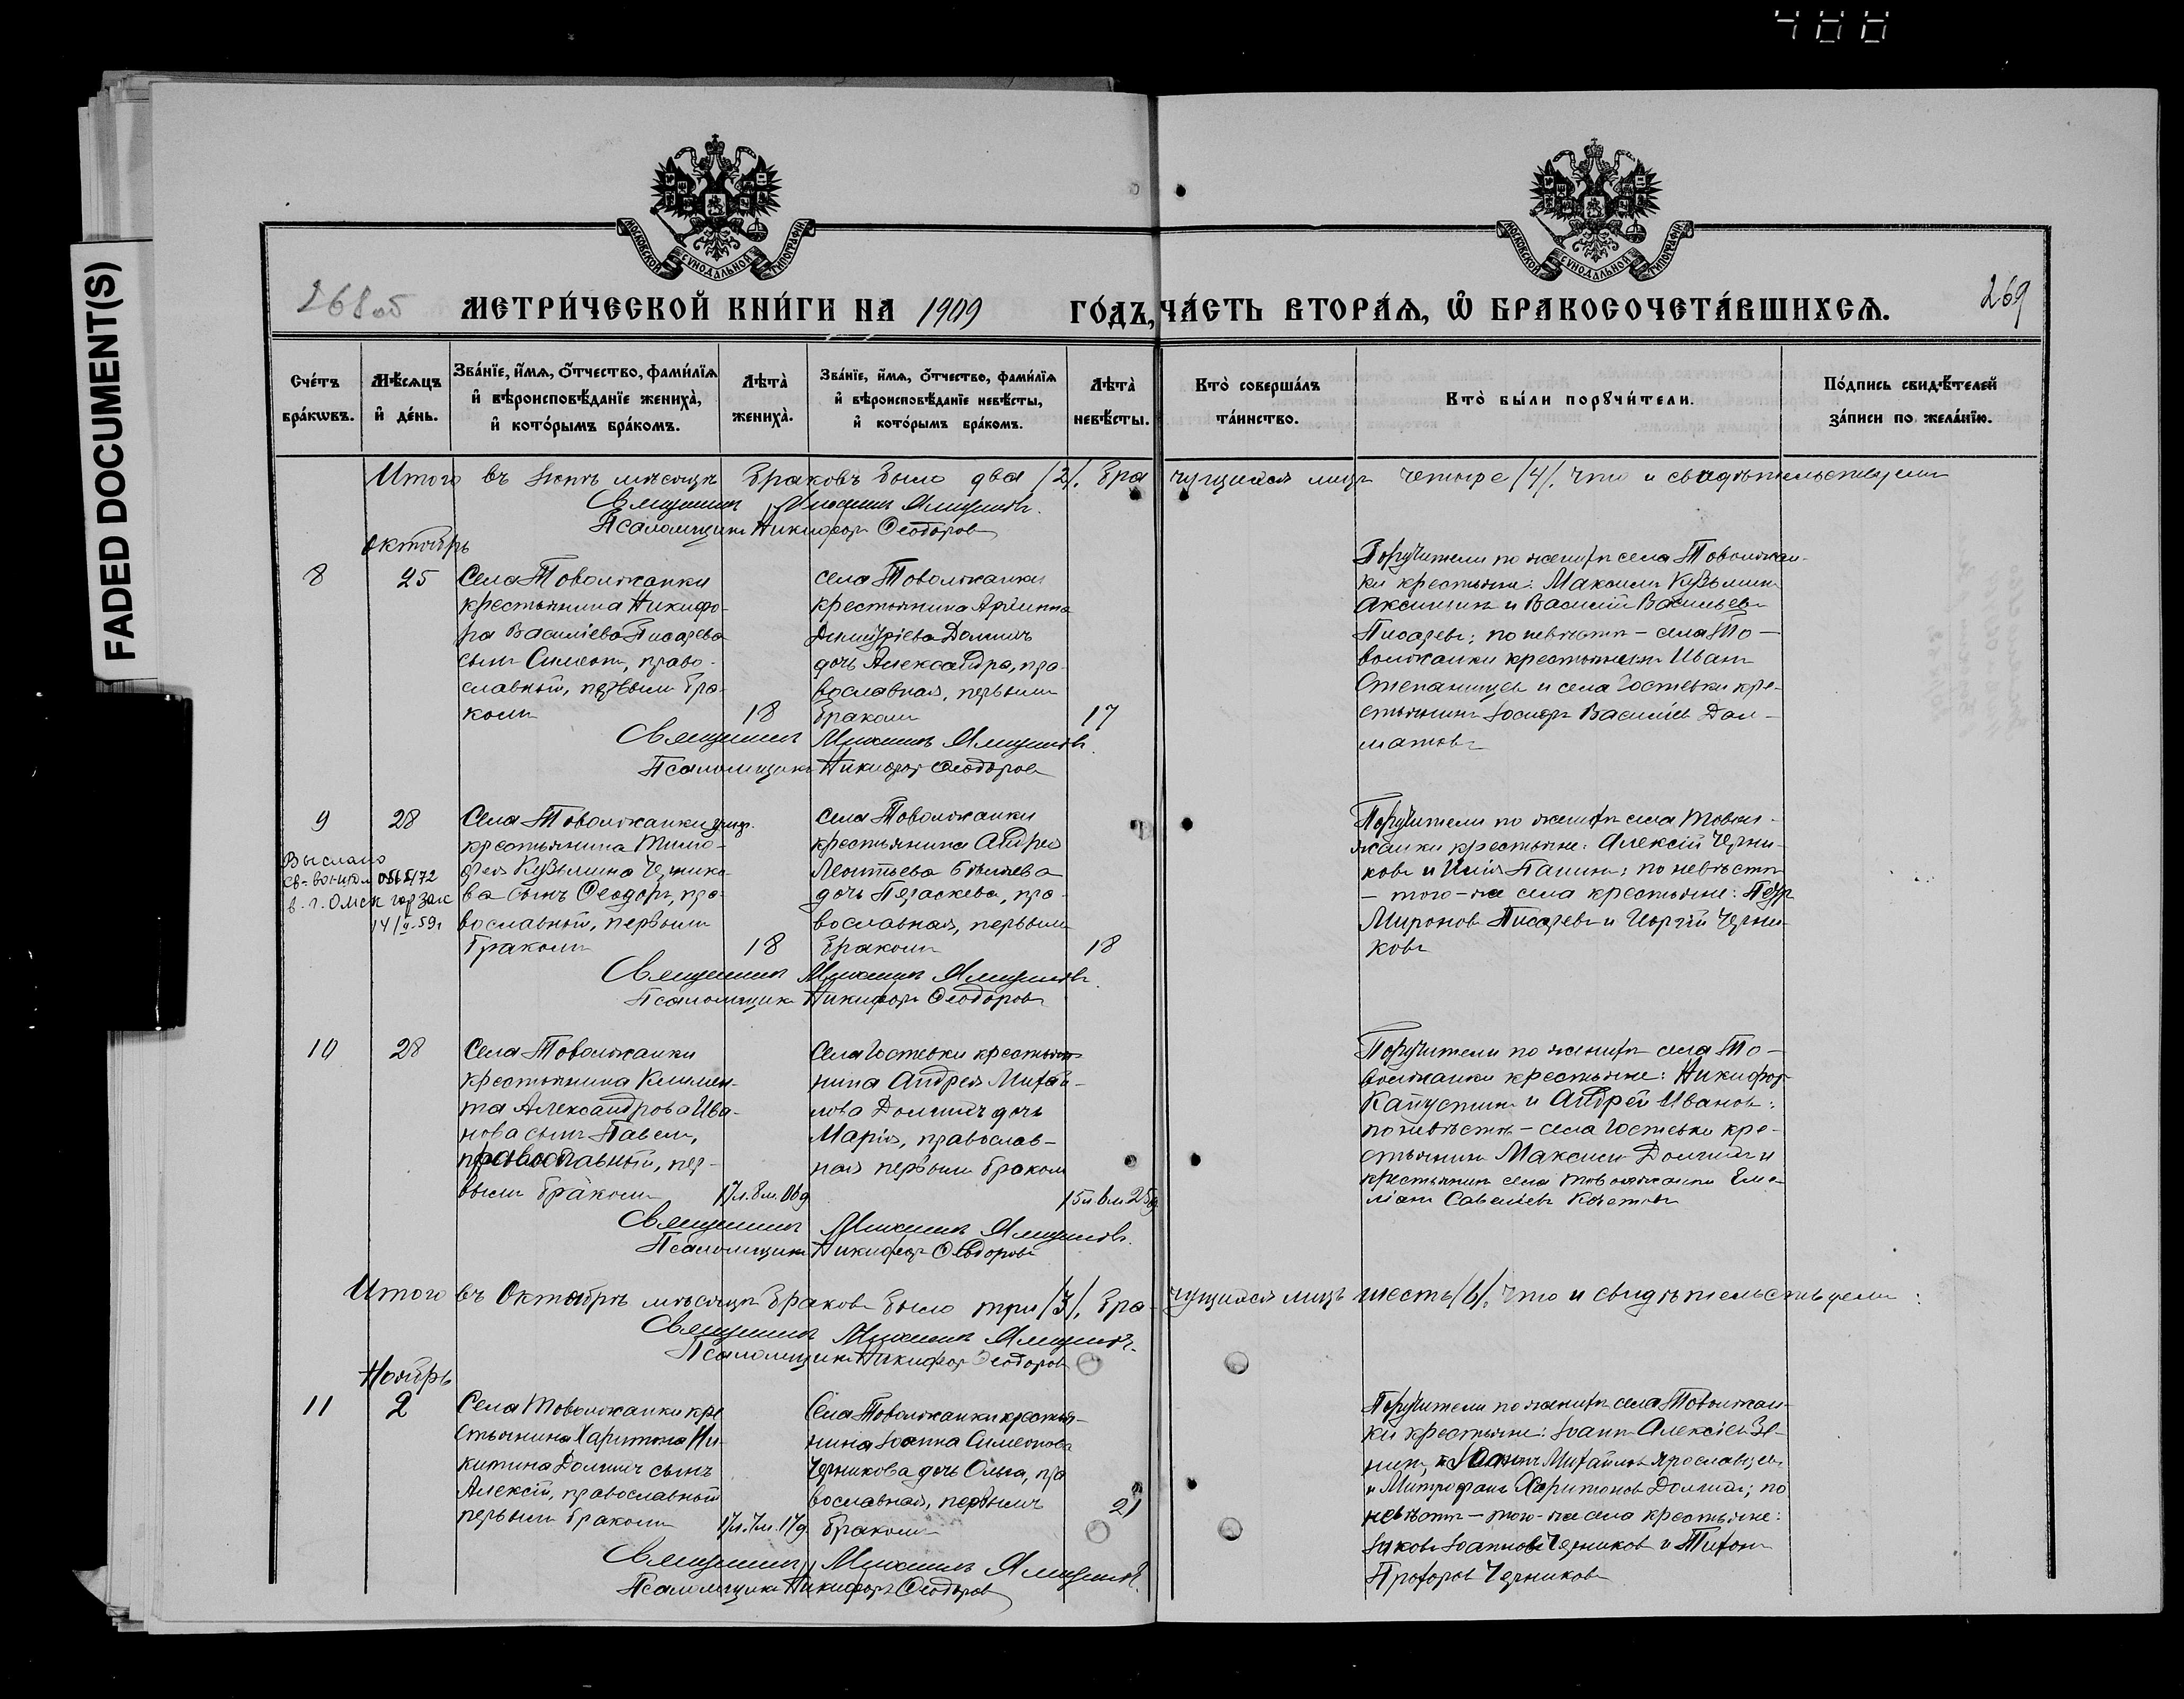 FADED DOCUMENT(S)
400
МОСКОВСКОЙ СѴНОДАЛЬНОЙ ТИПОГРАФІИ
МОСКОВСКОЙ СѴНОДАЛЬНОЙ ТИПОГРАФІИ
268об
МЕТРИ́ЧЕСКОЙ КНИ́ГИ НА 1909 ГО́ДЪ, ЧА́СТЬ ВТОРА́Ѧ, Ѡ҆ БРАКОСОЧЕТА́ВШИХСѦ.
269
Сче́тъ бра́кѡвъ.
Мѣ́сѧцъ и҆ де́нь.
Зва́нїе, и҆́мѧ, ѻ҆́тчество, фами́лїѧ и҆ вѣроисповѣ́данїе жениха̀, и҆ кото́рымъ бра́комъ.
Лѣта̀ жениха̀.
Зва́нїе, и҆́мѧ, ѻ҆́тчество, фами́лїѧ и҆ вѣроисповѣ́данїе невѣ́сты, и҆ кото́рымъ бра́комъ.
Лѣта̀ невѣ́сты.
Кто̀ соверша́лъ та́инство.
Кто̀ бы́ли порꙋчи́тели.
По́дпись свидѣ́телей за́писи по жела́нїю.
Итого въ мѣсяцѣ браковъ было два /2/. Бра чущихся лицъ четыре /4/. Что и свидѣтельствуемъ
Священникъ Михаилъ
Псаломщикъ Никифоръ Ѳеодоровъ
Октябрь
8
25
Села Товолжанки
крестьянина Никифо-
ра Василіева Писарева
сынъ Симеонъ, право-
славный, первымъ бра-
комъ
18
села Товолжанки
крестьянина
Димитріева Долгихъ
дочь Александра, пра-
вославная, первымъ
бракомъ
17
Поручители по женихѣ села Товолжан-
ки крестьяне: Максимъ Кузьминъ
и Василій Васильевъ
Писаревъ; по невѣстѣ – села То-
волжанки крестьянинъ Иванъ
и села Гостевки кре-
стьянинъ Іосифъ Василіевъ Дол-
матовъ
Священникъ Михаилъ
Псаломщикъ Никифоръ Ѳеодоровъ
9
28
Села Товолжанки
крестьянина Тимо-
фея Кузьмина Чернико-
ва сынъ Ѳеодоръ, пра-
вославный, первымъ
бракомъ
18
села Товолжанки
крестьянина Андрея
Леонтьева
дочь Параскева, пра-
вославная, первымъ
бракомъ
18
Поручители по женихѣ села Товол-
жанки крестьяне: Алексій Черни-
ковъ и Илія Панинъ; по невѣстѣ
– того-же села крестьяне: Петръ
Мироновъ Писаревъ и Георгій Черни-
ковъ
Выслано
в г. Омск гор загс
Священникъ Михаилъ
Псаломщикъ Никифоръ Ѳеодоровъ
10
28
Села Товолжанки
крестьянина Климен-
та Александрова Ива-
нова сынъ Павелъ,
православный, пер-
вымъ бракомъ
17л. 8м.
Села Гостевки крестья-
нина Андрея Михай-
лова Долгихъ дочь
Марія, православ-
ная первымъ бракомъ
15л 6м 25д
Поручители по женихѣ села То-
волжанки крестьяне: Никифоръ
Капустинъ и Андрей Ивановъ;
по невѣстѣ – села Гостевки кре-
стьянинъ Максимъ Долгихъ и
крестьянинъ села Товолжанки Еме-
ліанъ Савеліевъ
Священникъ Михаилъ
Псаломщикъ Никифоръ Ѳеодоровъ
Итого въ Октябрѣ мѣсяцѣ браковъ было три /3/. Бра- чущихся лицъ шесть /6/. Что и свидѣтельствуемъ:
Священникъ Михаилъ
Псаломщикъ Никифоръ Ѳеодоровъ
Ноябрь
11
2
Села Товолжанки кре
стьянина Харитона Ни-
китина Долгихъ сынъ
Алексій, православный
первымъ бракомъ
17л. 7м. 17д.
Села Товолжанки крестья-
нина Іоанна Симеонова
Черникова дочь Ольга, пра
вославная, первымъ
бракомъ
21
Поручители по женихѣ села Товолжан-
ки крестьяне: Іоаннъ Алексіевъ
Іоаннъ Михайловъ Ярославцевъ
и Митрофанъ Харитоновъ Долгихъ; по
невѣстѣ – того-же села крестьяне:
Іаковъ Іоанновъ Черниковъ и Тихонъ
Прохоровъ Черниковъ
Священникъ Михаилъ
Псаломщикъ Никифоръ Ѳеодоровъ